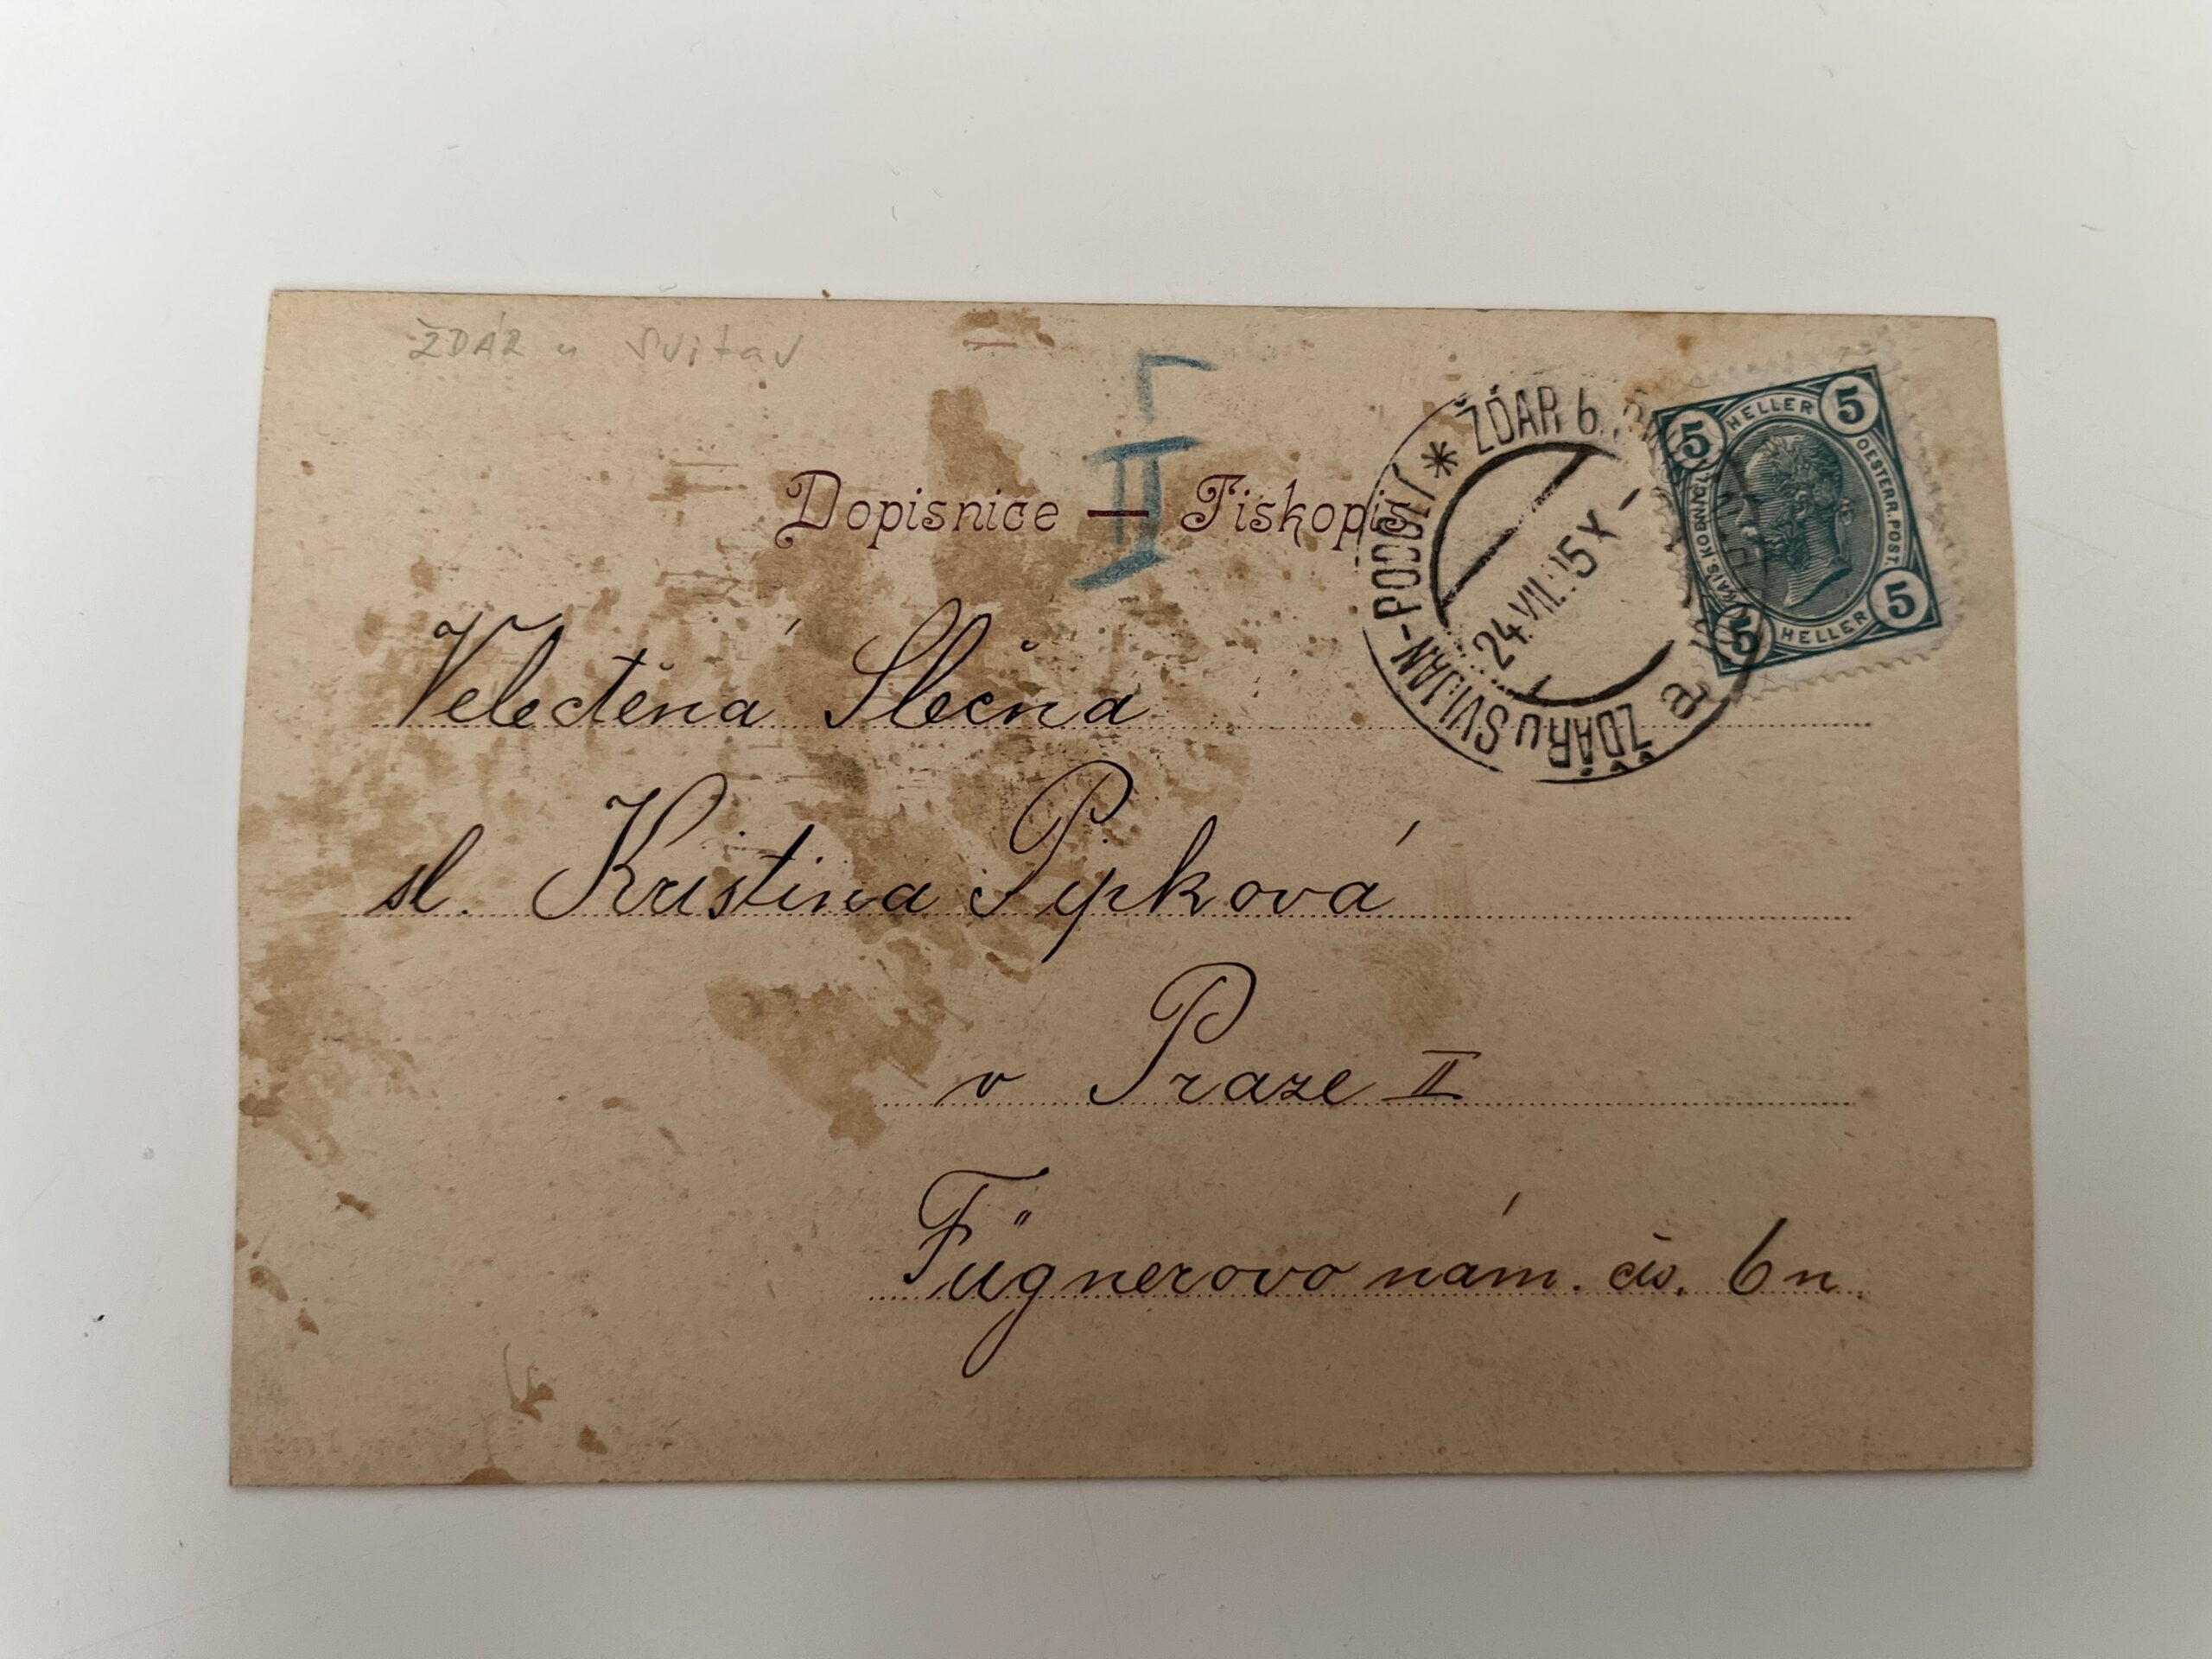 ŽDÁR u Svitav
II
Dopisnice — Tiskopis
ŽDÁR b.
ŽĎÁR u SVIJAN-PODOLÍ *
24.VII. 15 X -
a
5 HELLER 5
OESTERR. POST.
5 HELLER 5
Velectěná Slečna
sl. Kristina Pipková
v Praze II
Fügnerovo nám. čís. 6 n.